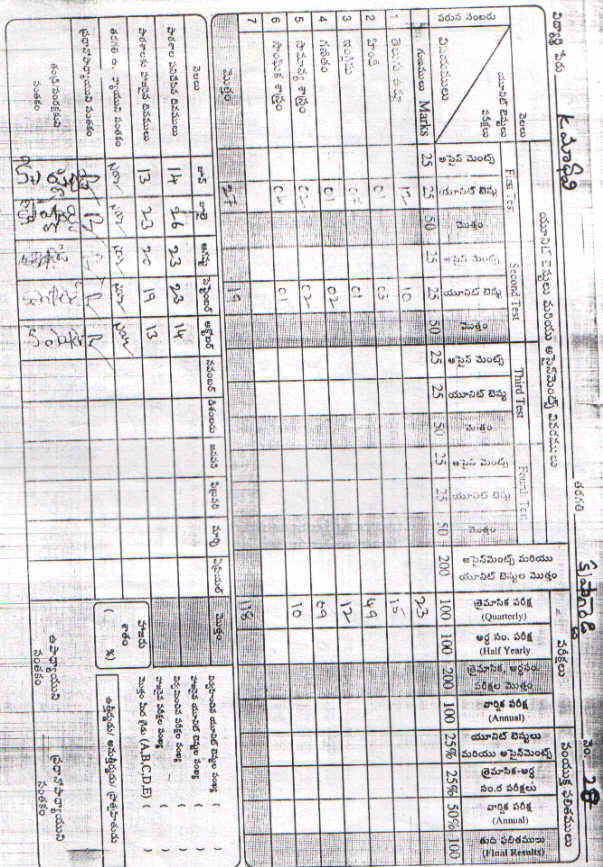 విద్యార్థి పేరు K. మాధవి తరగతి నెం. 28
యూనిట్ టెస్టులు మరియు అసైన్‌మెంట్స్ వివరములు
పరీక్షలు
సంయుక్త ఫలితములు
వరుస నంబరు
నెలలు
యూనిట్ టెస్టులు
పరీక్షలు
విషయములు
గుణములు Marks
First Test
Second Test
Third Test
Fourth Test
అసైన్ మెంట్స్ 25
యూనిట్ టెస్టు 25
మొత్తం 50
అసైన్ మెంట్స్ 25
యూనిట్ టెస్టు 25
మొత్తం 50
అసైన్ మెంట్స్ 25
యూనిట్ టెస్టు 25
మొత్తం 50
అసైన్ మెంట్స్ 25
యూనిట్ టెస్టు 25
మొత్తం 50
అసైన్‌మెంట్స్ మరియు యూనిట్ టెస్టుల మొత్తం 200
త్రైమాసిక పరీక్ష (Quarterly) 100
అర్ధ సం. పరీక్ష (Half Yearly 100
త్రైమాసిక, అర్ధసం. పరీక్షల మొత్తం 200
వార్షిక పరీక్ష (Annual) 100
యూనిట్ టెస్టులు మరియు అసైన్‌మెంట్స్ 25%
త్రైమాసిక-అర్ధ సం.ర పరీక్షలు 25%
వార్షిక పరీక్ష (Annual) 50%
తుది ఫలితములు (Final Results) 100
1 తెలుగు 12 10 23
2 హిందీ 01 03 15
3 ఇంగ్లీషు 01 49
4 గణితం 01 02 12
5 సామాన్య శాస్త్రం 02 02 09
6 సాంఘిక శాస్త్రం 04 01 10
7
మొత్తం 27 19 118
నెలలు జూన్ జూలై ఆగస్టు సెప్టెంబర్ అక్టోబర్ నవంబర్ డిశంబరు జనవరి ఫిబ్రవరి మార్చి ఏప్రియల్ మొత్తం
పాఠశాల పనిచేసిన దినములు 14 26 23 23 14
పాఠశాలకు హాజరైన దినములు 13 23 20 19 13
తరగతి ఉపాధ్యాయుని సంతకం
ప్రధానోపాధ్యాయుని సంతకం
తండ్రి/సంరక్షకుని సంతకం
హాజరు శాతం ( %)
నిర్వహించిన యూనిట్ టెస్టుల సంఖ్య ( )
హాజరైన యూనిట్ టెస్టుల సంఖ్య ( )
నిర్వహించిన పరీక్షల సంఖ్య ( )
హాజరైన పరీక్షల సంఖ్య ( )
మొత్తం మీద గ్రేడు (A,B,C,D,E) ( )
ఉపాధ్యాయుని సంతకం
ప్రధానోపాధ్యాయుని సంతకం